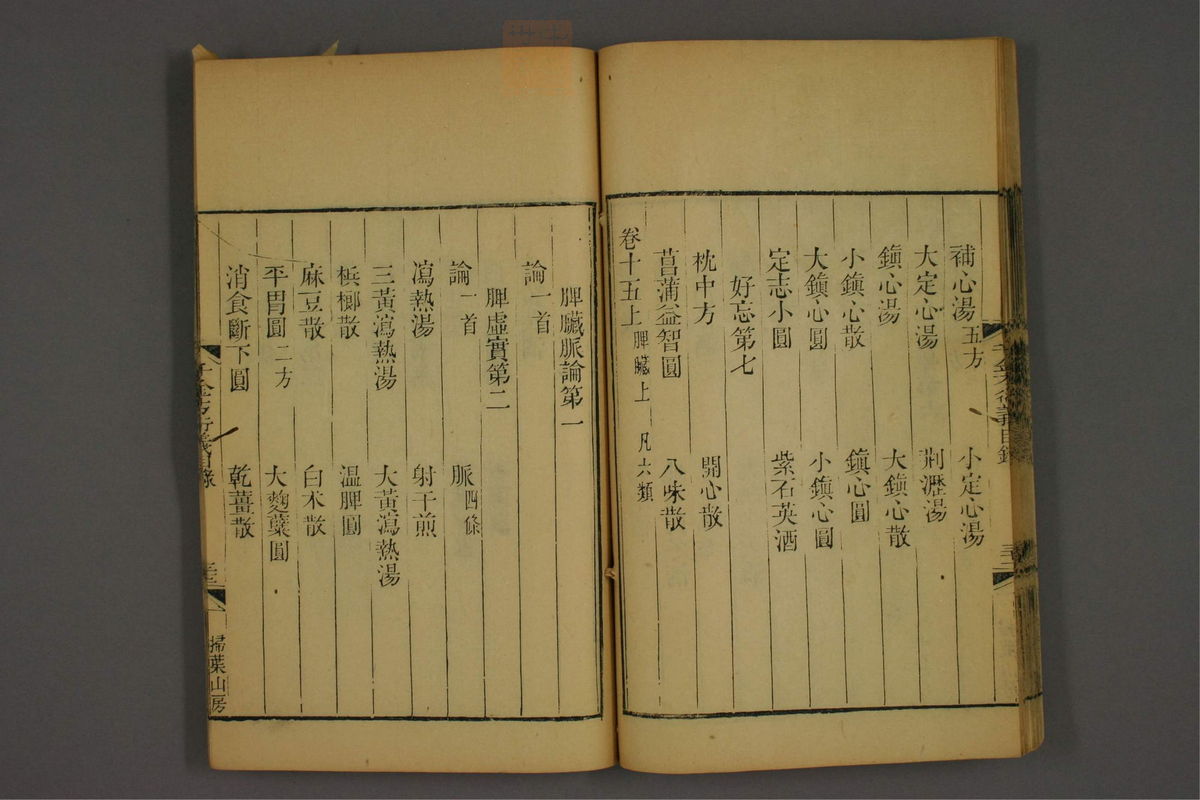 補心湯五方 小定心湯
大定心湯 荊瀝湯
鎮心湯 大鎮心散
小鎮心散 鎮心圓
大鎮心圓 小鎮心圓
定志小圓 紫石英酒
好忘第七
枕中方 開心散
菖蒲益智圓 八味散
卷十五上 脾臟上 凡六類
脾臟脈論第一
論一首
脾虛實第二
論一首 脈四條
瀉熱湯 射干煎
三黃瀉熱湯 大黃瀉熱湯
檳榔散 温脾圓
麻豆散 白朮散
平胃圓二方 大麴蘗圓
消食斷下圓 乾薑散
千金方衍義目錄
掃葉山房